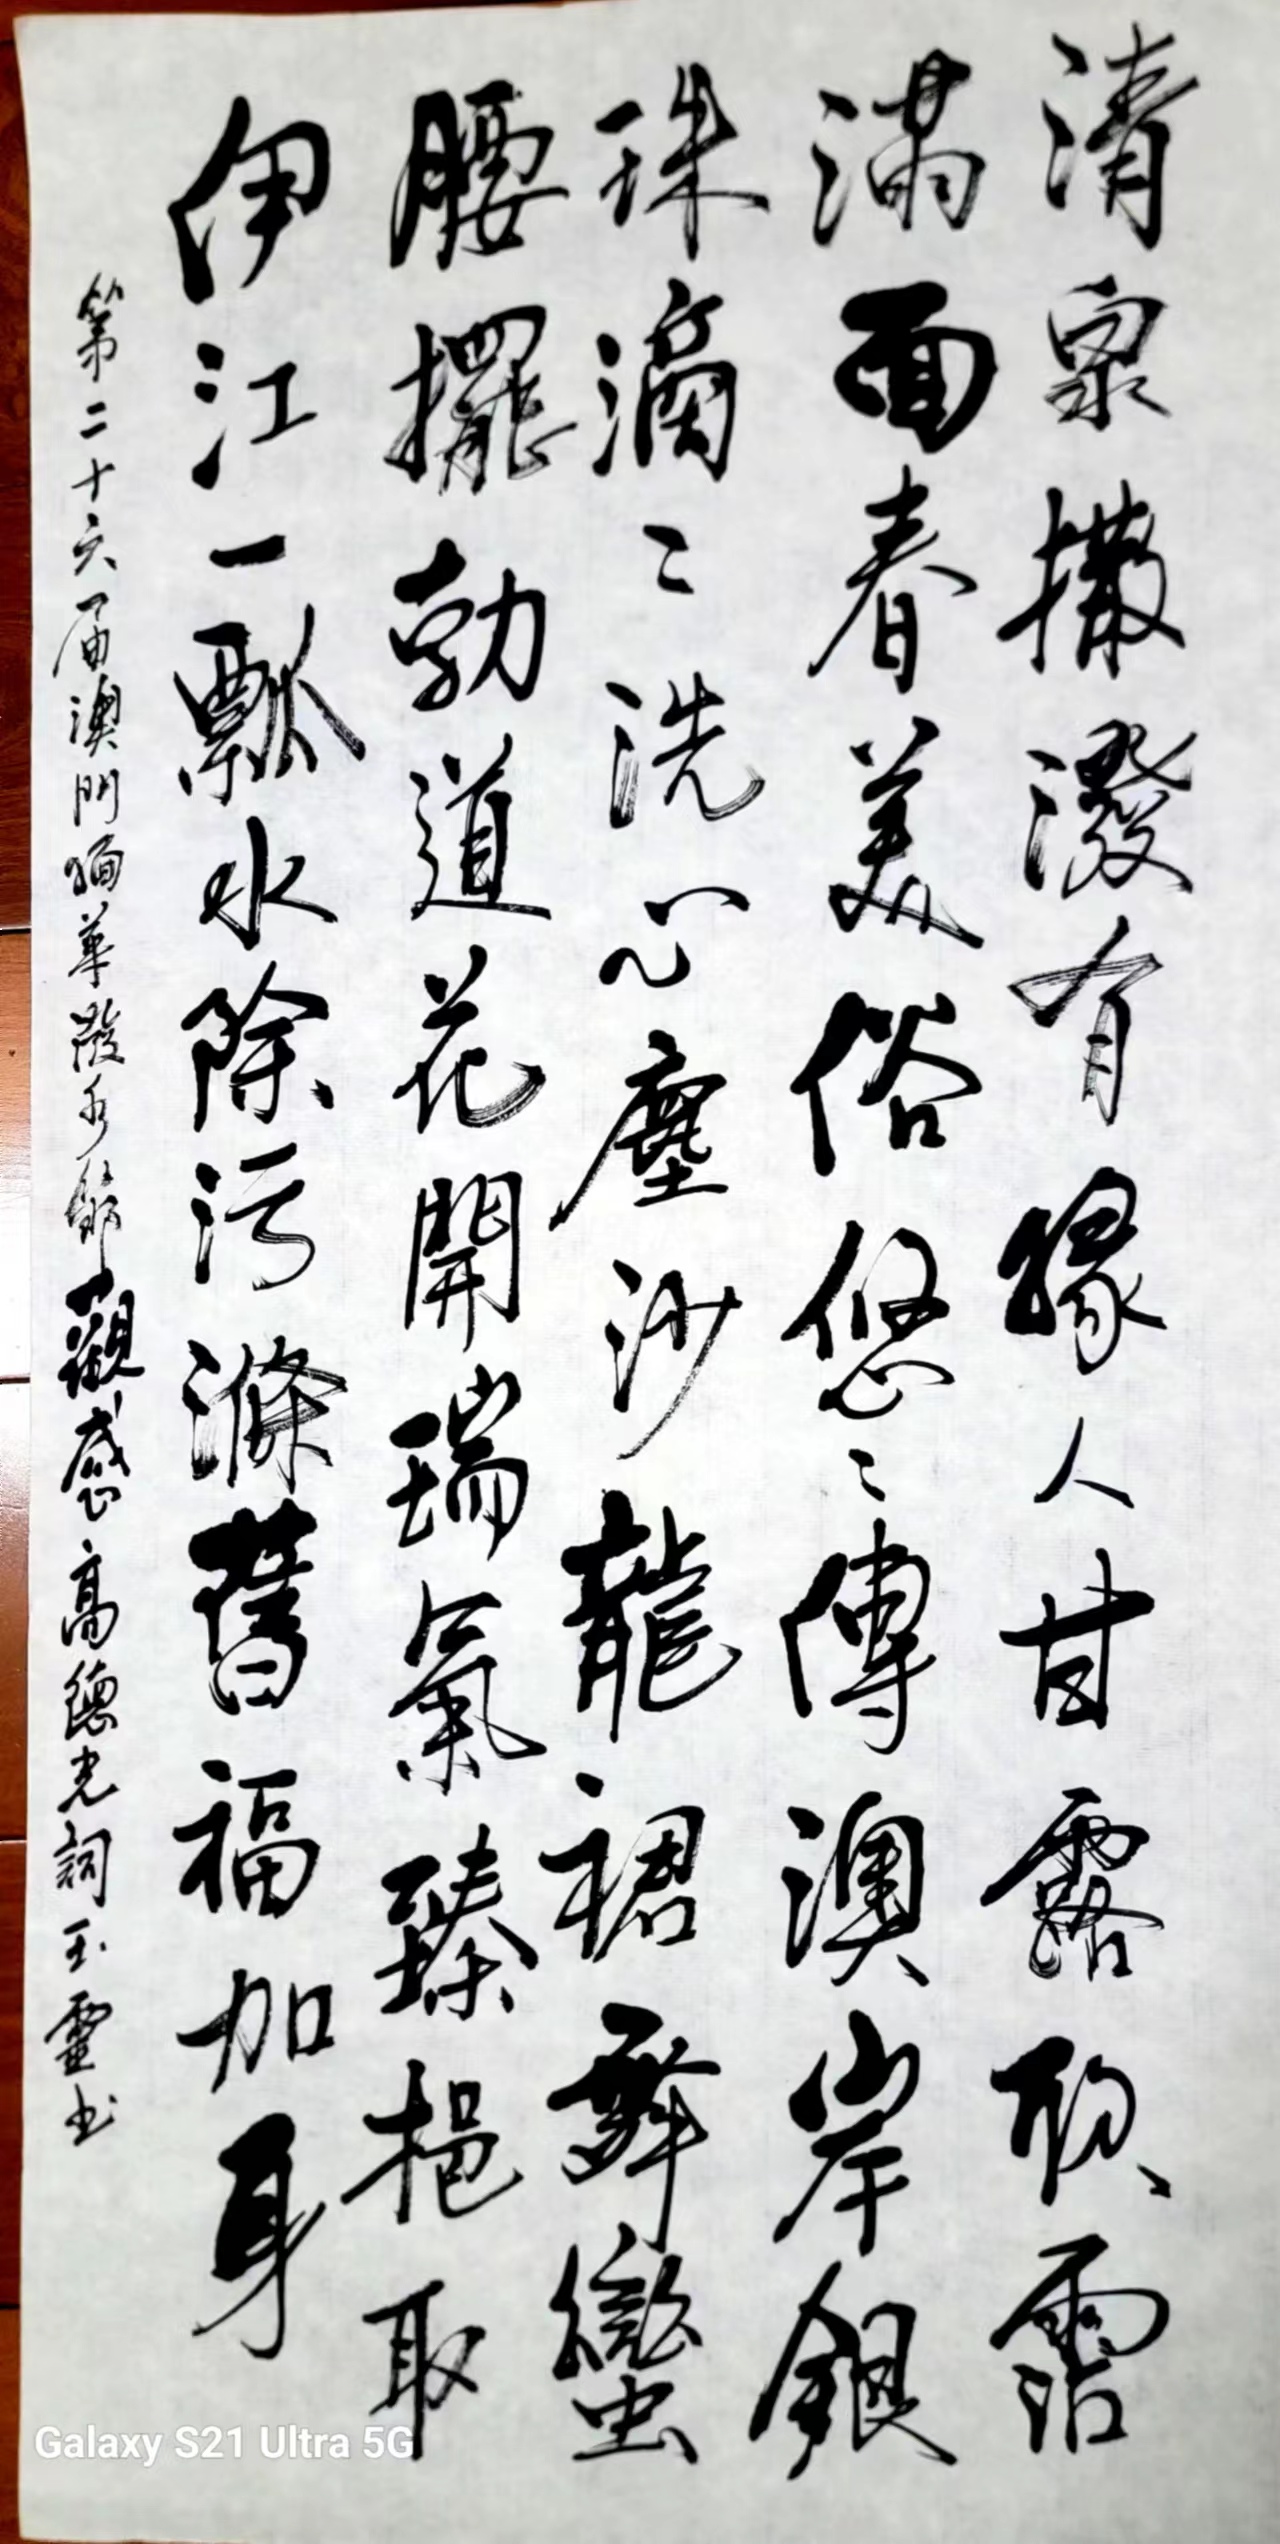 清泉撒潑有緣人甘露歡霑
滿面春美俗悠〻傳澳岸銀
珠滴〻洗心塵沙龍裙舞蠻
腰擺勃道花開瑞氣臻挹取
伊江一瓢水除污滌舊福加身
第二十六屆澳門緬華潑水節觀感高德光詞玉靈书
Galaxy S21 Ultra 5G